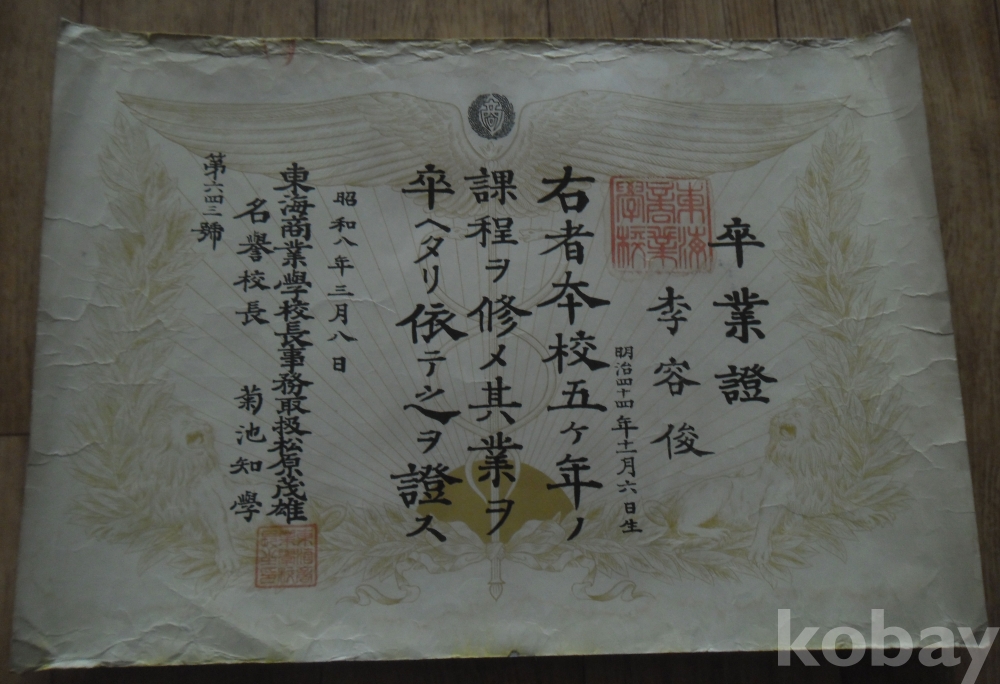 卒業證
李容俊
明治四十四年十一月六日生
東海商業學校
右者本校五ケ年ノ
課程ヲ修メ其業ヲ
卒ヘタリ依テ之ヲ證ス
昭和八年三月八日
東海商業學校長事務取扱松原茂雄
名譽校長 菊池知學
第六四三號
商
kobay